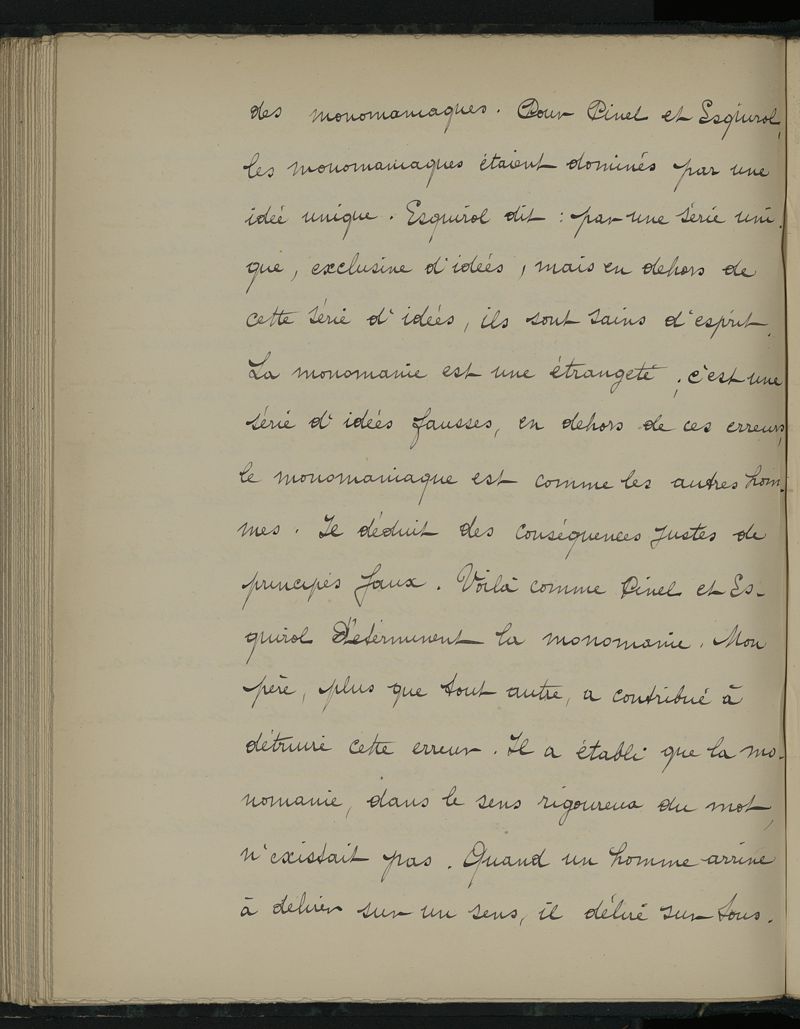 des monomaniaques. Pour Pinel et Esquirol,
les monomaniaques étaient dominés par une
idée unique. Esquirol dit : par une série uni-
que, exclusive d'idées, mais en dehors de
cette série d'idées, ils sont sains d'esprit.
La monomanie est une étrangeté ; c'est une
série d'idées fausses, en dehors de ces erreurs,
le monomaniaque est comme les autres hom-
mes. Il déduit des conséquences justes de
principes faux. Voilà comme Pinel et Es-
quirol déterminent la monomanie. Mon
père, plus que tout autre, a contribué à
détruire cette erreur. Il a établi que la mo-
nomanie, dans le sens rigoureux du mot,
n'existait pas. Quand un homme arrive
à délirer sur un sens, il délire sur tous.